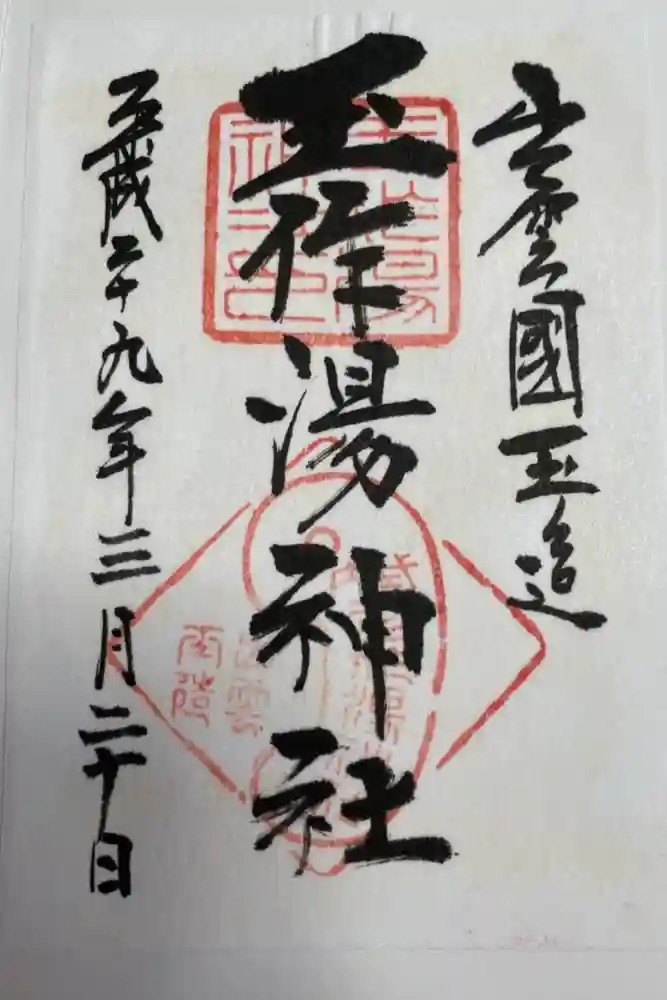 出雲國玉造
玉作湯神社
平成二十九年三月二十日